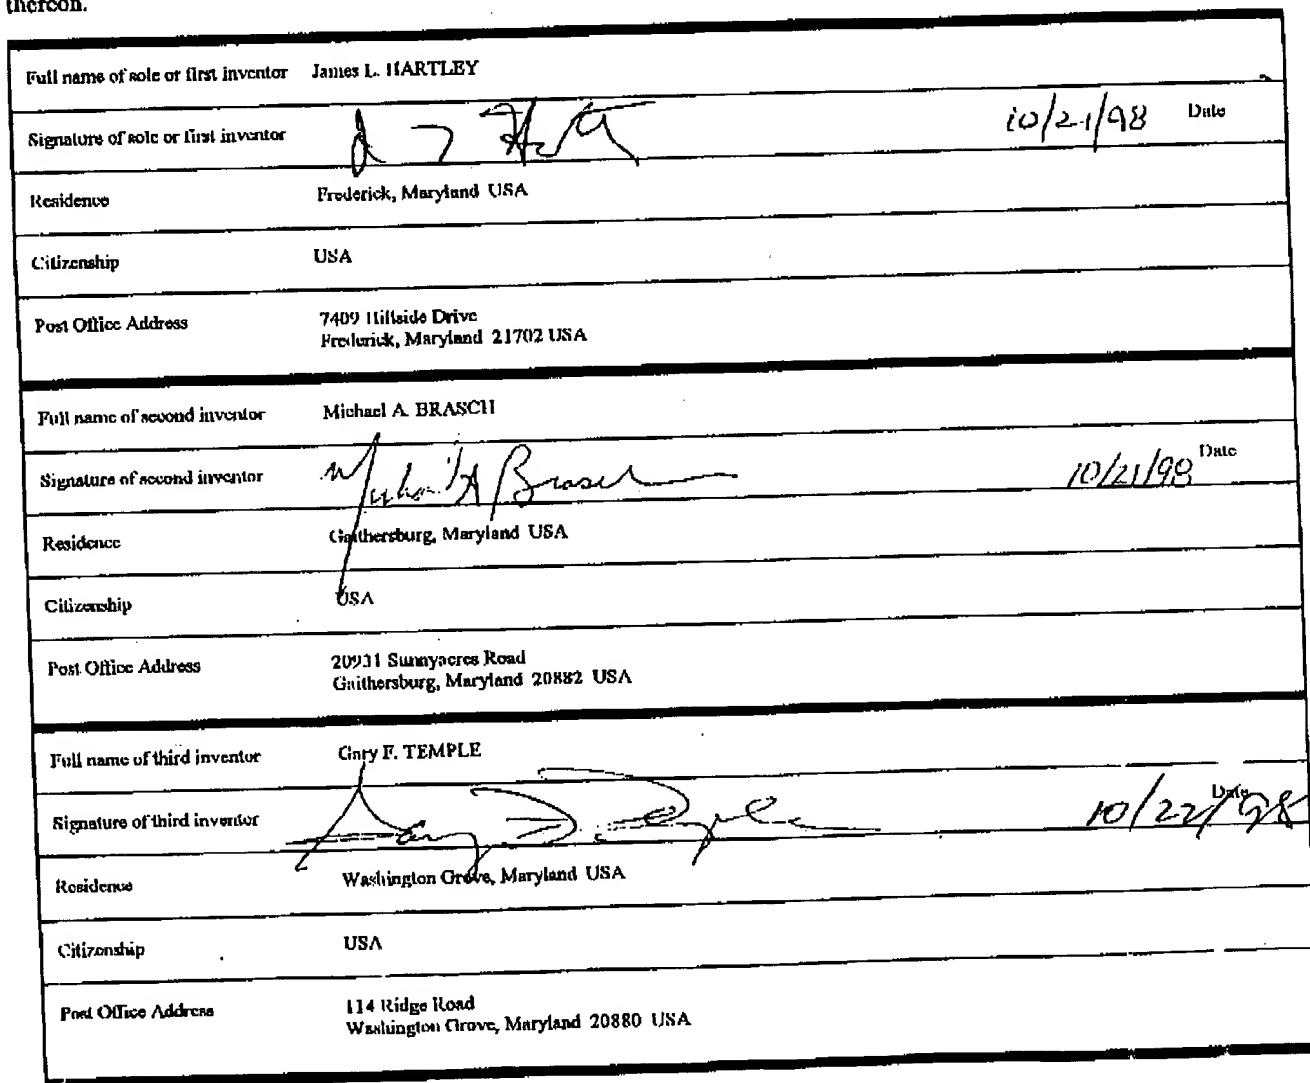 thereon.
Full name of sole or first inventor James L. HARTLEY
Signature of sole or first inventor 10/21/98 Date
Residence Frederick, Maryland USA
Citizenship USA
Post Office Address 7409 Hillside Drive
Frederick, Maryland 21702 USA
Full name of second inventor Michael A. BRASCH
Signature of second inventor Michael A Brasch 10/21/98 Date
Residence Gaithersburg, Maryland USA
Citizenship USA
Post Office Address 20931 Sunnyacres Road
Gaithersburg, Maryland 20882 USA
Full name of third inventor Gary F. TEMPLE
Signature of third inventor Gary F. Temple 10/22/98 Date
Residence Washington Grove, Maryland USA
Citizenship USA
Post Office Address 114 Ridge Road
Washington Grove, Maryland 20880 USA